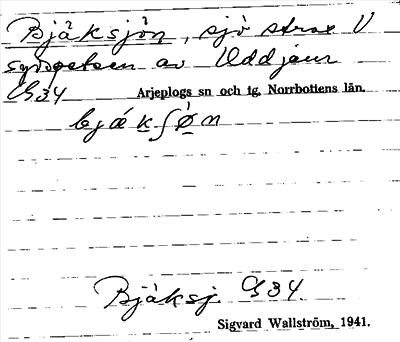 Bjäksjön, sjö strax V
sydspetsen av Uddjaur
G34 Arjeplogs sn och tg, Norrbottens län.
bjǽkʃø̀n
Bjäksj. G34
Sigvard Wallström, 1941.